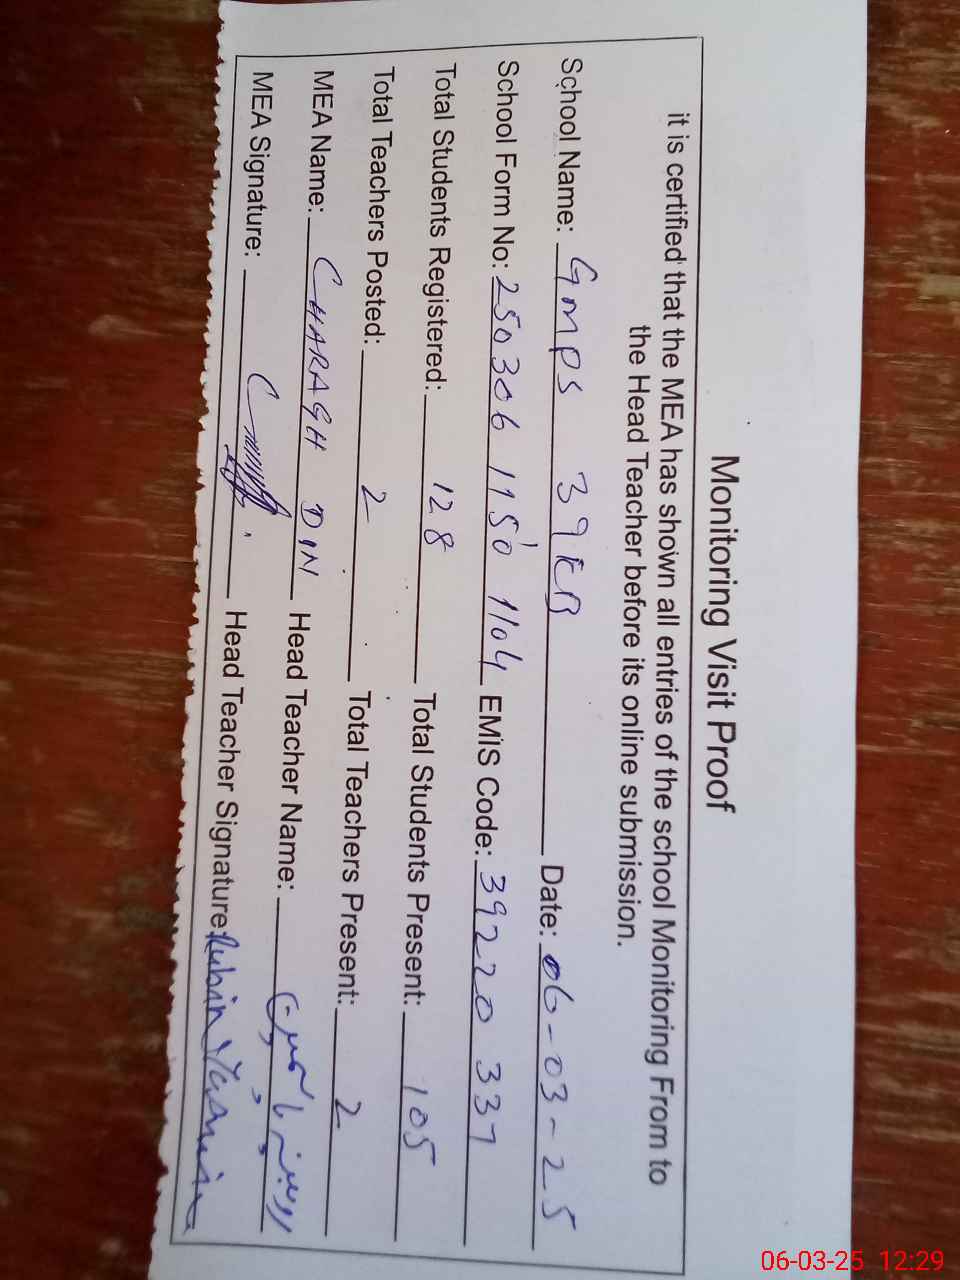 Monitoring Visit Proof
it is certified that the MEA has shown all entries of the school Monitoring From to
the Head Teacher before its online submission.
School Name: GMPS 39KB Date: 06-03-25
School Form No: 250306 1150 1104 EMIS Code: 39220 337
Total Students Registered: 128 Total Students Present: 105
Total Teachers Posted: 2 Total Teachers Present: 2
MEA Name: CHARAGH DIN Head Teacher Name: روبینہ یاسمین
MEA Signature: Head Teacher Signature: Rubina Yasmin
06-03-25 12:29